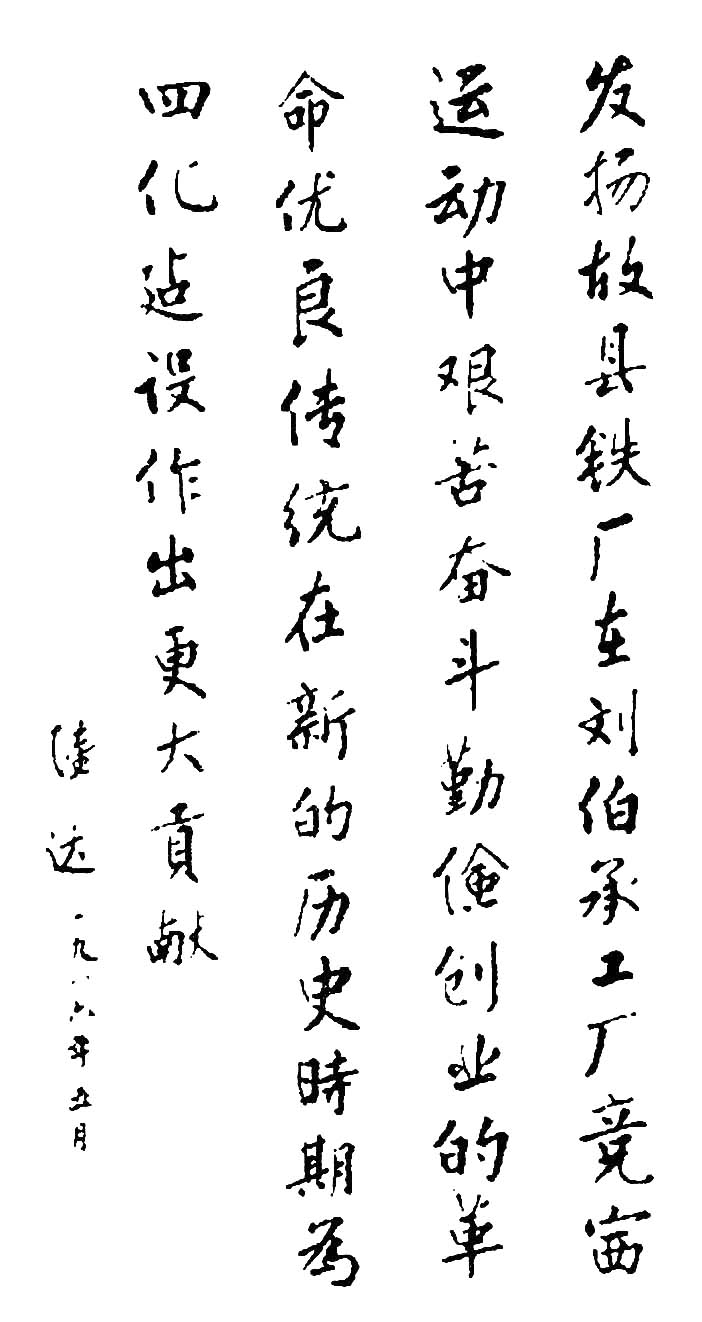 发扬故县铁厂在刘伯承工厂竞赛
运动中艰苦奋斗勤俭创业的革
命优良传统在新的历史時期為
四化建设作出更大貢献
陸达 一九八六年五月